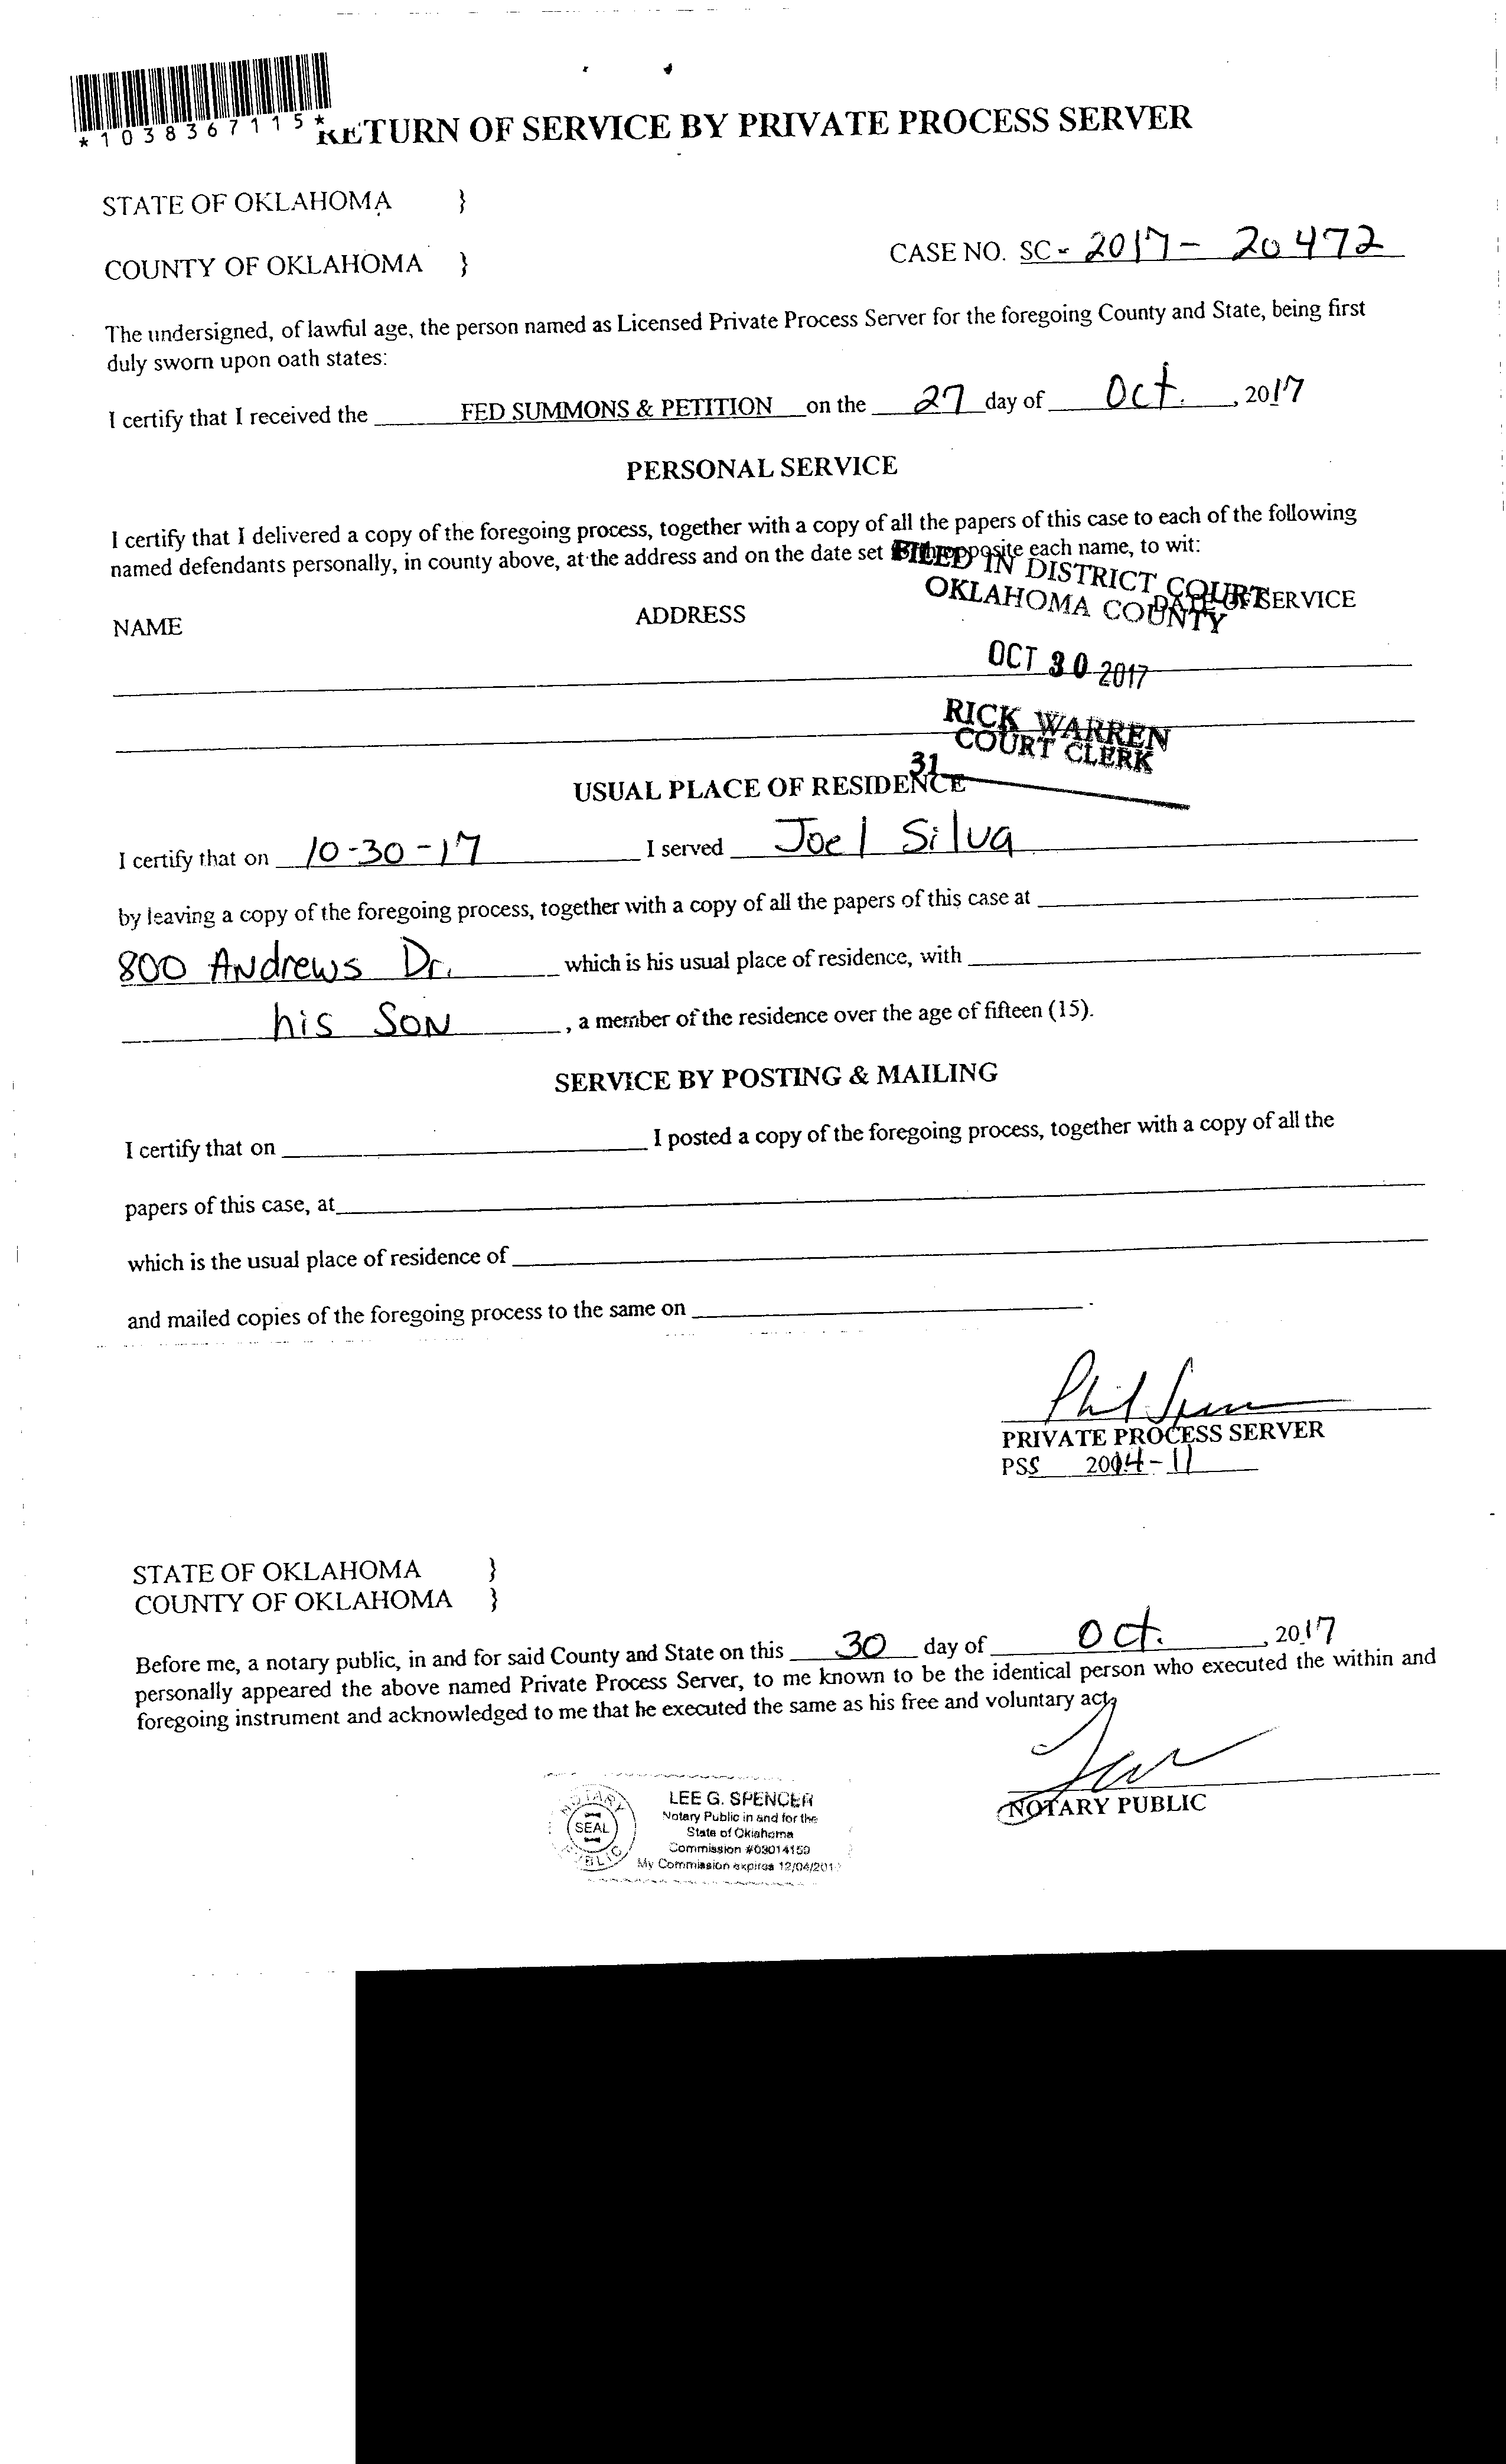 *1038367115*
RETURN OF SERVICE BY PRIVATE PROCESS SERVER
STATE OF OKLAHOMA }
CASE NO. SC - 2017 - 20472
COUNTY OF OKLAHOMA }
The undersigned, of lawful age, the person named as Licensed Private Process Server for the foregoing County and State, being first
duly sworn upon oath states:
I certify that I received the FED SUMMONS & PETITION on the 27 day of Oct. , 2017
PERSONAL SERVICE
I certify that I delivered a copy of the foregoing process, together with a copy of all the papers of this case to each of the following
named defendants personally, in county above, at the address and on the date set forth opposite each name, to wit:
FILED IN DISTRICT COURT
OKLAHOMA COUNTY
NAME ADDRESS DATE OF SERVICE
OCT 30 2017
RICK WARREN
COURT CLERK
31
USUAL PLACE OF RESIDENCE
I certify that on 10-30-17 I served Joel Silva
by leaving a copy of the foregoing process, together with a copy of all the papers of this case at
800 Andrews Dr. which is his usual place of residence, with
his SON , a member of the residence over the age of fifteen (15).
SERVICE BY POSTING & MAILING
I certify that on I posted a copy of the foregoing process, together with a copy of all the
papers of this case, at
which is the usual place of residence of
and mailed copies of the foregoing process to the same on .
PRIVATE PROCESS SERVER
PSS 2004-11
STATE OF OKLAHOMA }
COUNTY OF OKLAHOMA }
Before me, a notary public, in and for said County and State on this 30 day of Oct. , 2017
personally appeared the above named Private Process Server, to me known to be the identical person who executed the within and
foregoing instrument and acknowledged to me that he executed the same as his free and voluntary act.
NOTARY PUBLIC
NOTARY PUBLIC
SEAL
LEE G. SPENCER
Notary Public in and for the
State of Oklahoma
Commission #03014159
My Commission expires